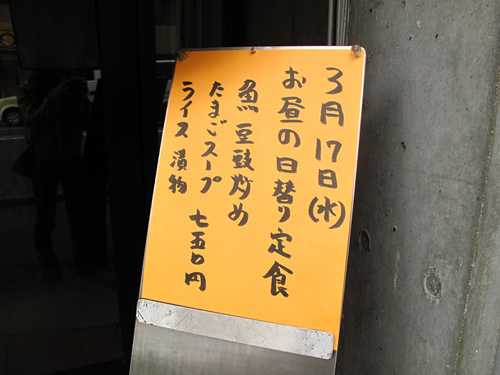 3月17日(水)
お昼の日替り定食
魚豆豉炒め
たまごスープ
ライス 漬物
七五〇円